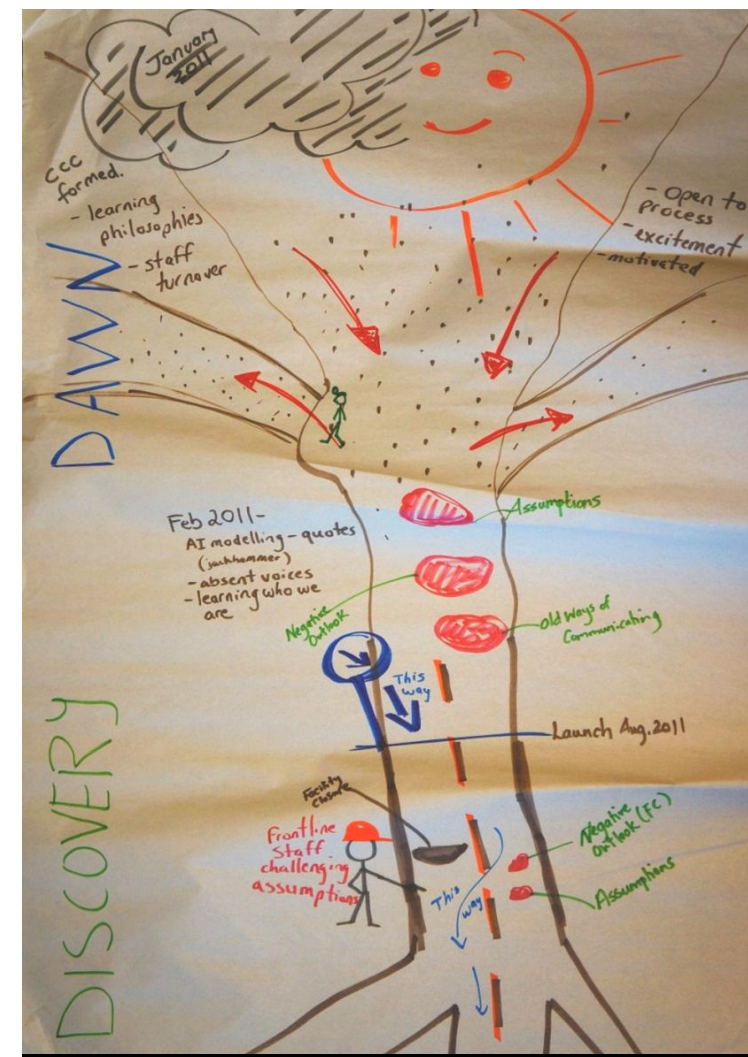 January
2011
CCC
formed.
- learning
philosophies
- staff
turnover
- Open to
process
- excitement
- motivated
DAWN
Feb 2011-
AI modelling - quotes
(jackhammer)
- absent voices
- learning who we
are
Assumptions
Negative
Outlook
Old Ways of
Communicating
This
way
Launch Aug. 2011
DISCOVERY
Facility
Closure
Frontline
Staff
challenging
assumptions
This
way
Negative
Outlook (FC)
Assumptions